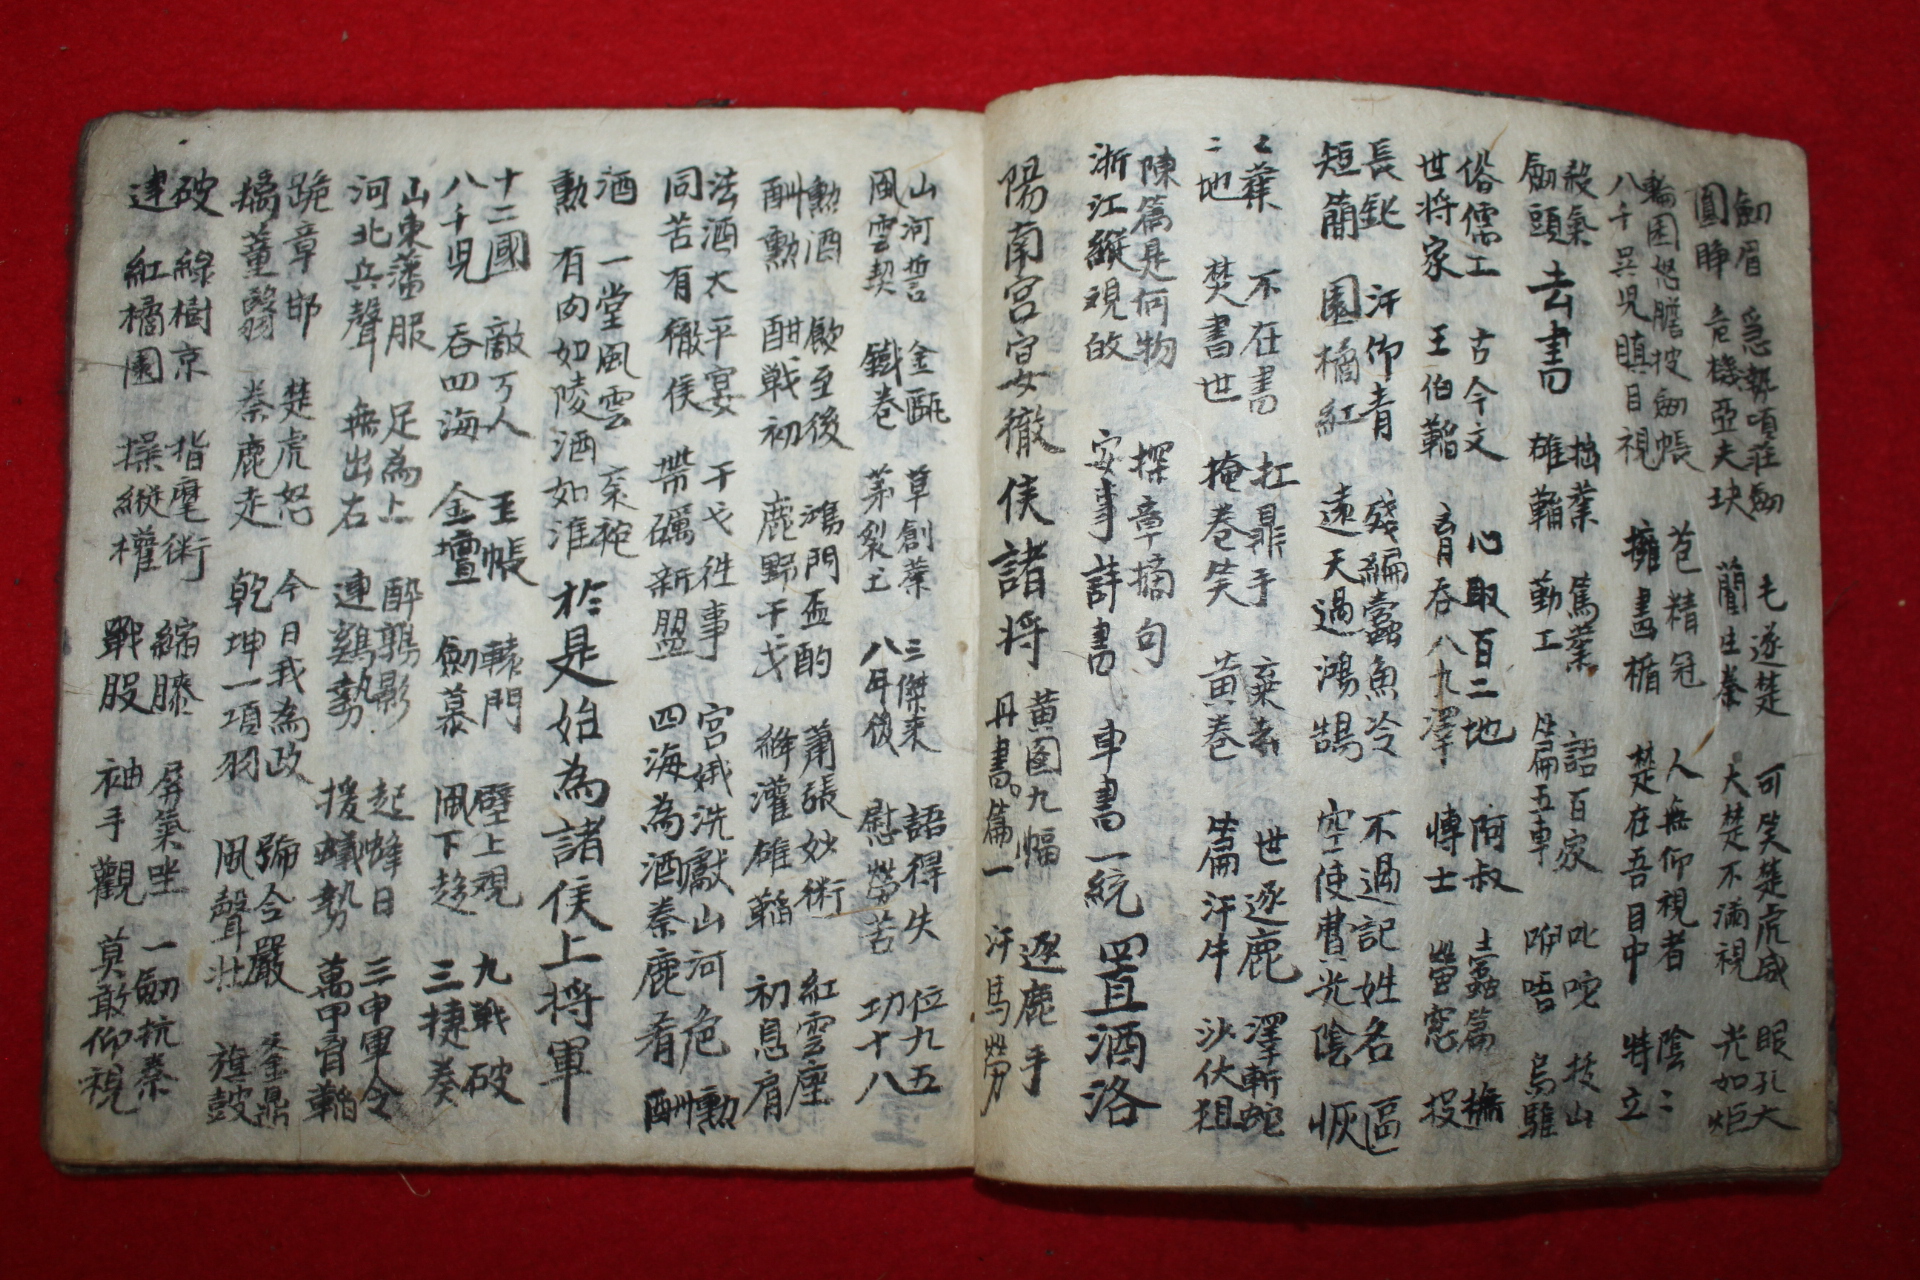 劍眉 急勢項莊劍 毛遂楚 可笑楚虎威 眼孔大
圓睜 危機亞夫玦 藺生秦 大楚不滿視 光如炬
輪囷怒膽披劍帳 苞精冠 人無仰視者 陰二
八千吳児瞋目視 擁盡楯 楚在吾目中 特立
殺氣
劍頭
去書
拙業 篤業 語百家 叱咤 拔山
雄韜 勤工 扁五車 咿唔 烏騅
俗儒工 古今文 心取百二地 阿叔 土蠹篇 撫
世将家 王伯韜 胸吞八九澤 博士 螢窓 投
長鈚 汗仰青 殘編蠹魚冷 不過記姓名 區
短簡 園橘紅 遠天過鴻鵠 空使費光陰 恢
之業 不在書 扛鼎手 棄我 世逐鹿 澤斬蛇
二地 焚書世 掩卷笑 黃卷 篇汗牛 沙伏狙
陳篇是何物 探章摘句
浙江縱視改 安事詩書 車書一統
置酒洛
陽南宮宣女徹侯諸将
黃圖九幅 逐鹿手
丹書篇一 汗馬勞
山河誓 金甌 草創業 三傑来 語得失 位九五
風雲契 鐵卷 茅裂土 八年後 慰勞苦 功十八
勲酒飲至後 鴻門盃酌 蕭張妙術 紅雲座
酬勲酣戦初 鹿野干戈 絳灌雄韜 初息肩
法酒太平宴 干戈徃事 宮娥洗獻山河危 勲
同苦有徹侯 帶礪新盟 四海為酒秦鹿肴 酬
酒一堂風雲 裹袍
勲 有肉如陵酒如淮
於是始為諸侯上将軍
十二國 敵万人 玉帳 轅門 壁上視 九戦破
八千児 吞四海 金壇 劍幕 風下趍 三捷奏
山東藩服 足為上 醉鶚影 起蜂日 三申軍令
河北兵聲 無出右 連鷄勢 援蟻勢 萬甲胷韜
跪章邯 楚虎怒 今日我為政 號令嚴 秦鼎
摛董翳 秦鹿走 乾坤一項羽 風聲壯 旗鼓
破 綠樹京 指麾術 縮膝 屏氣坐 一劍抗秦
連 紅橘園 操縱權 戰股 袖手觀 莫敢仰視